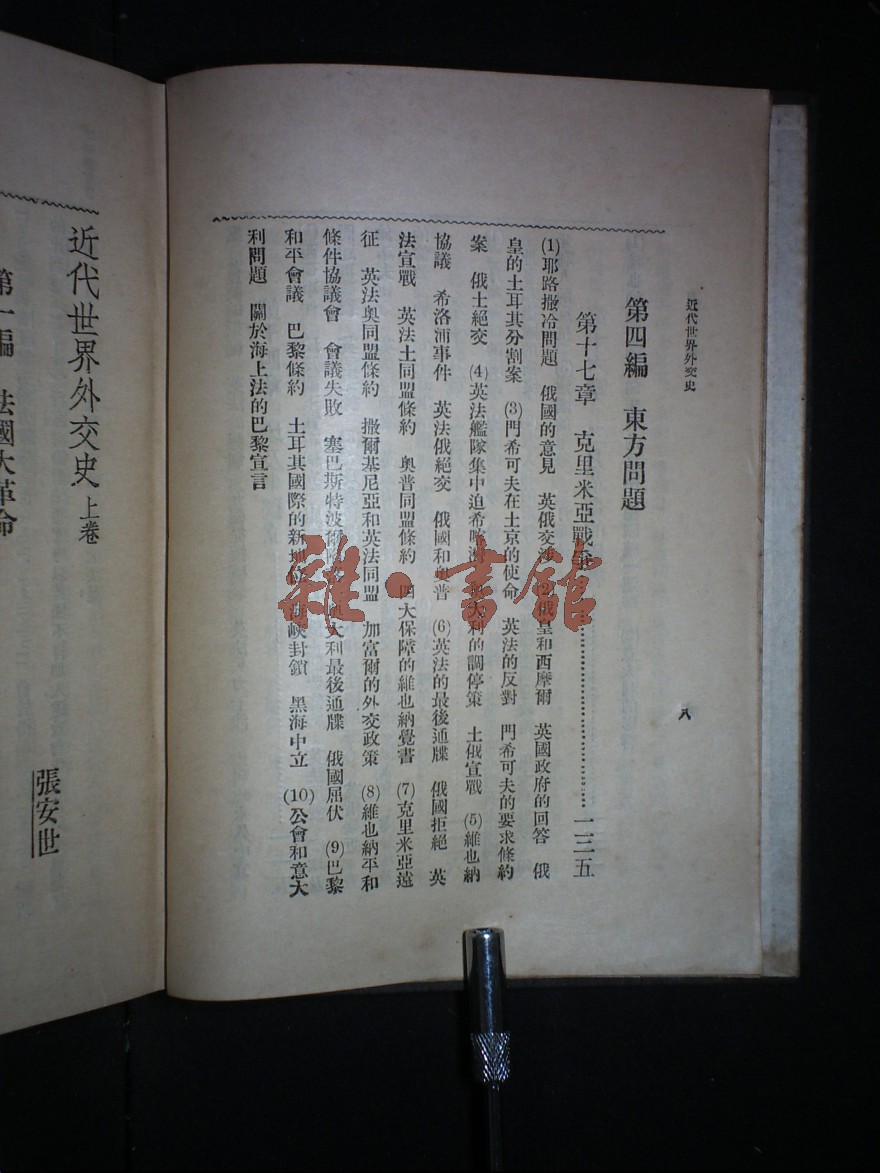 近代世界外交史
八
第四編　東方問題
第十七章　克里米亞戰爭⋯⋯⋯⋯⋯⋯一三五
(1)耶路撒冷問題　俄國的意見　英俄交涉　(2)俄皇和西摩爾　英國政府的回答　俄
皇的土耳其分割案　(3)門希可夫在土京的使命　英法的反對　門希可夫的要求條約
案　俄土絕交　(4)英法艦隊集中迫希 奧大利的調停策　土俄宣戰　(5)維也納
協議　希洛浦事件　英法俄絕交　俄國和奧普　(6)英法的最後通牒　俄國拒絕　英
法宣戰　英法土同盟條約　奧普同盟條約　四大保障的維也納覺書　(7)克里米亞遠
征　英法奧同盟條約　撒爾基尼亞和英法同盟　加富爾的外交政策　(8)維也納平和
條件協議會　會議失敗　塞巴斯特波 奧大利最後通牒　俄國屈伏　(9)巴黎
和平會議　巴黎條約　土耳其國際的新地位　海峽封鎖　黑海中立　(10)公會和意大
利問題　關於海上法的巴黎宣言
近代世界外交史　上卷
張安世
第一編　法國大革命
雜·書館